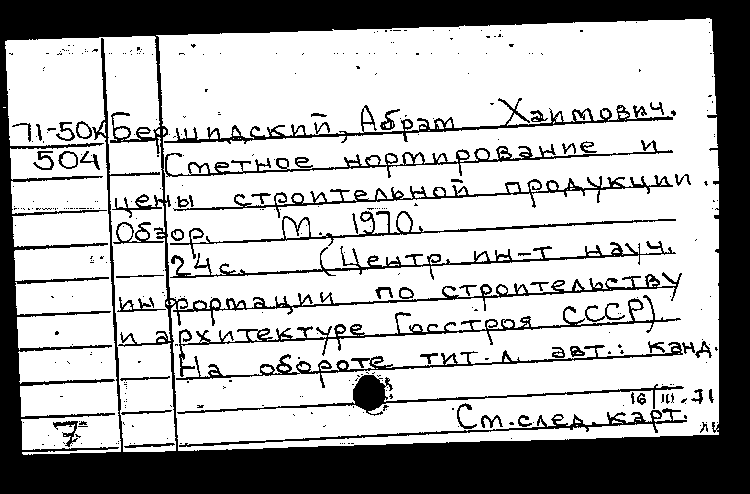 71-50к Бершидский, Абрам Хаимович.
504 Сметное нормирование и
цены строительной продукции.
Обзор. М., 1970.
24 с. (Центр. ин-т науч.
информации по строительству
и архитектуре Госстроя СССР).
На обороте тит. л. авт.: канд.
16/III-71
7 См. след. карт.